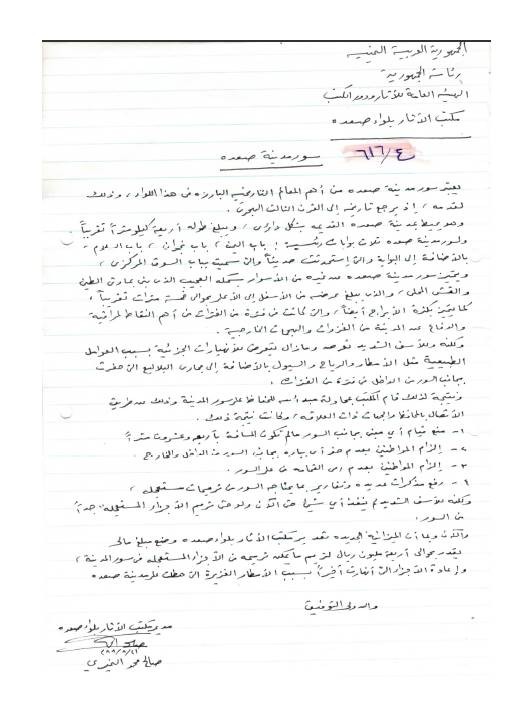 الجمهورية العربية اليمنية
رئاسة الجمهورية
الهيئة العامة للآثار ودور الكتب
مكتب الآثار بلواء صعده
٦١٦/٤
سور مدينة صعده
يعتبر سور مدينة صعده من أهم المعالم التاريخية البارزة في هذا اللواء، وذلك
لقدمه، إذ يرجع تاريخه إلى القرن الثالث الهجري.
وهو يحيط بمدينة صعده القديمه بشكل دائري، ويبلغ طوله أربعة كيلومتراً تقريباً.
ولسور مدينة صعده ثلاث بوابات رئيسية: باب اليمن، باب نجران، باب السلام،
بالأضافة إلى البوابة والتي إستحدثت حديثاً والتي سميت بباب السوق المركزي،
ويتميز سور مدينة صعده عن غيره من الأسوار بشكله العجيب الذي بني بمادتي الطين
والقش المحلي، والذي يبلغ عرضه من الأسفل إلى الأعلى حوالي خمسة مترات تقريباً،
كما يتميز بكثرة الأبراج أيضاً، والتي كانت في فترة من الفترات من أهم النقاط لمراقبة
والدفاع عن المدينة من الغزوات والهجمات الخارجية.
ولكنه وللأسف الشديد تعرض ومازال يتعرض للأنهيارات الجزئية بسبب العوامل
الطبيعية مثل الأمطار والرياح والسيول بالأضافة إلى مجاري البلاليع التي حفرت
بجانب السور من الداخل في فترة من الفترات.
ونتيجة لذلك قام المكتب بمحاولة للحفاظ على سور المدينة وذلك عن طريق
الأتصال بالمحافظ والجهات ذات العلاقه، وكانت نتيجة ذلك.
١- منع قيام أي مبنى بجانب السور مالم تكون المسافة بأربعه وعشرون متراً
٢- إلزام المواطنين بعدم حفر أي بياره بجانب السور من الداخل والخارج.
٣- إلزام المواطنين بعدم رمي القمامه على السور.
٤- رفع مذكرات عديده وتقارير بما يحتاجه السور من ترميمات مستعجله،
ولكنه للأسف الشديد لم ينفذ أي شيء حتى الآن ولو حتى ترميم الأجزاء المستعجله جداً
من السور.
والآن وبما أن الميزانية الجديده فقد مكتب الآثار بلواء صعده وضع مبلغ مالي
يقدر بحوالي أربعة مليون ريال لترميم ما يمكن ترميمه من الأجزاء المستعجله من سور المدينة،
وإعادة الأجزاء التي أنهارت أخيراً بسبب الأمطار الغزيرة التي هطلت على مدينة صعده
والله ولي التوفيق
مدير مكتب الآثار بلواء صعده
صالح محمد